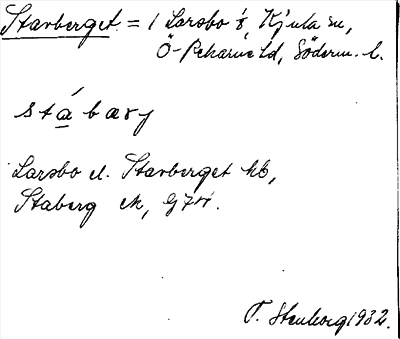 Starberget = 1 Larsbo 8, Kjula sn,
Ö-Rekarne hd, Söderm. l.
stábarj
Larsbo el. Starberget hb,
Staberg ek,
T. Stenborg 1932.